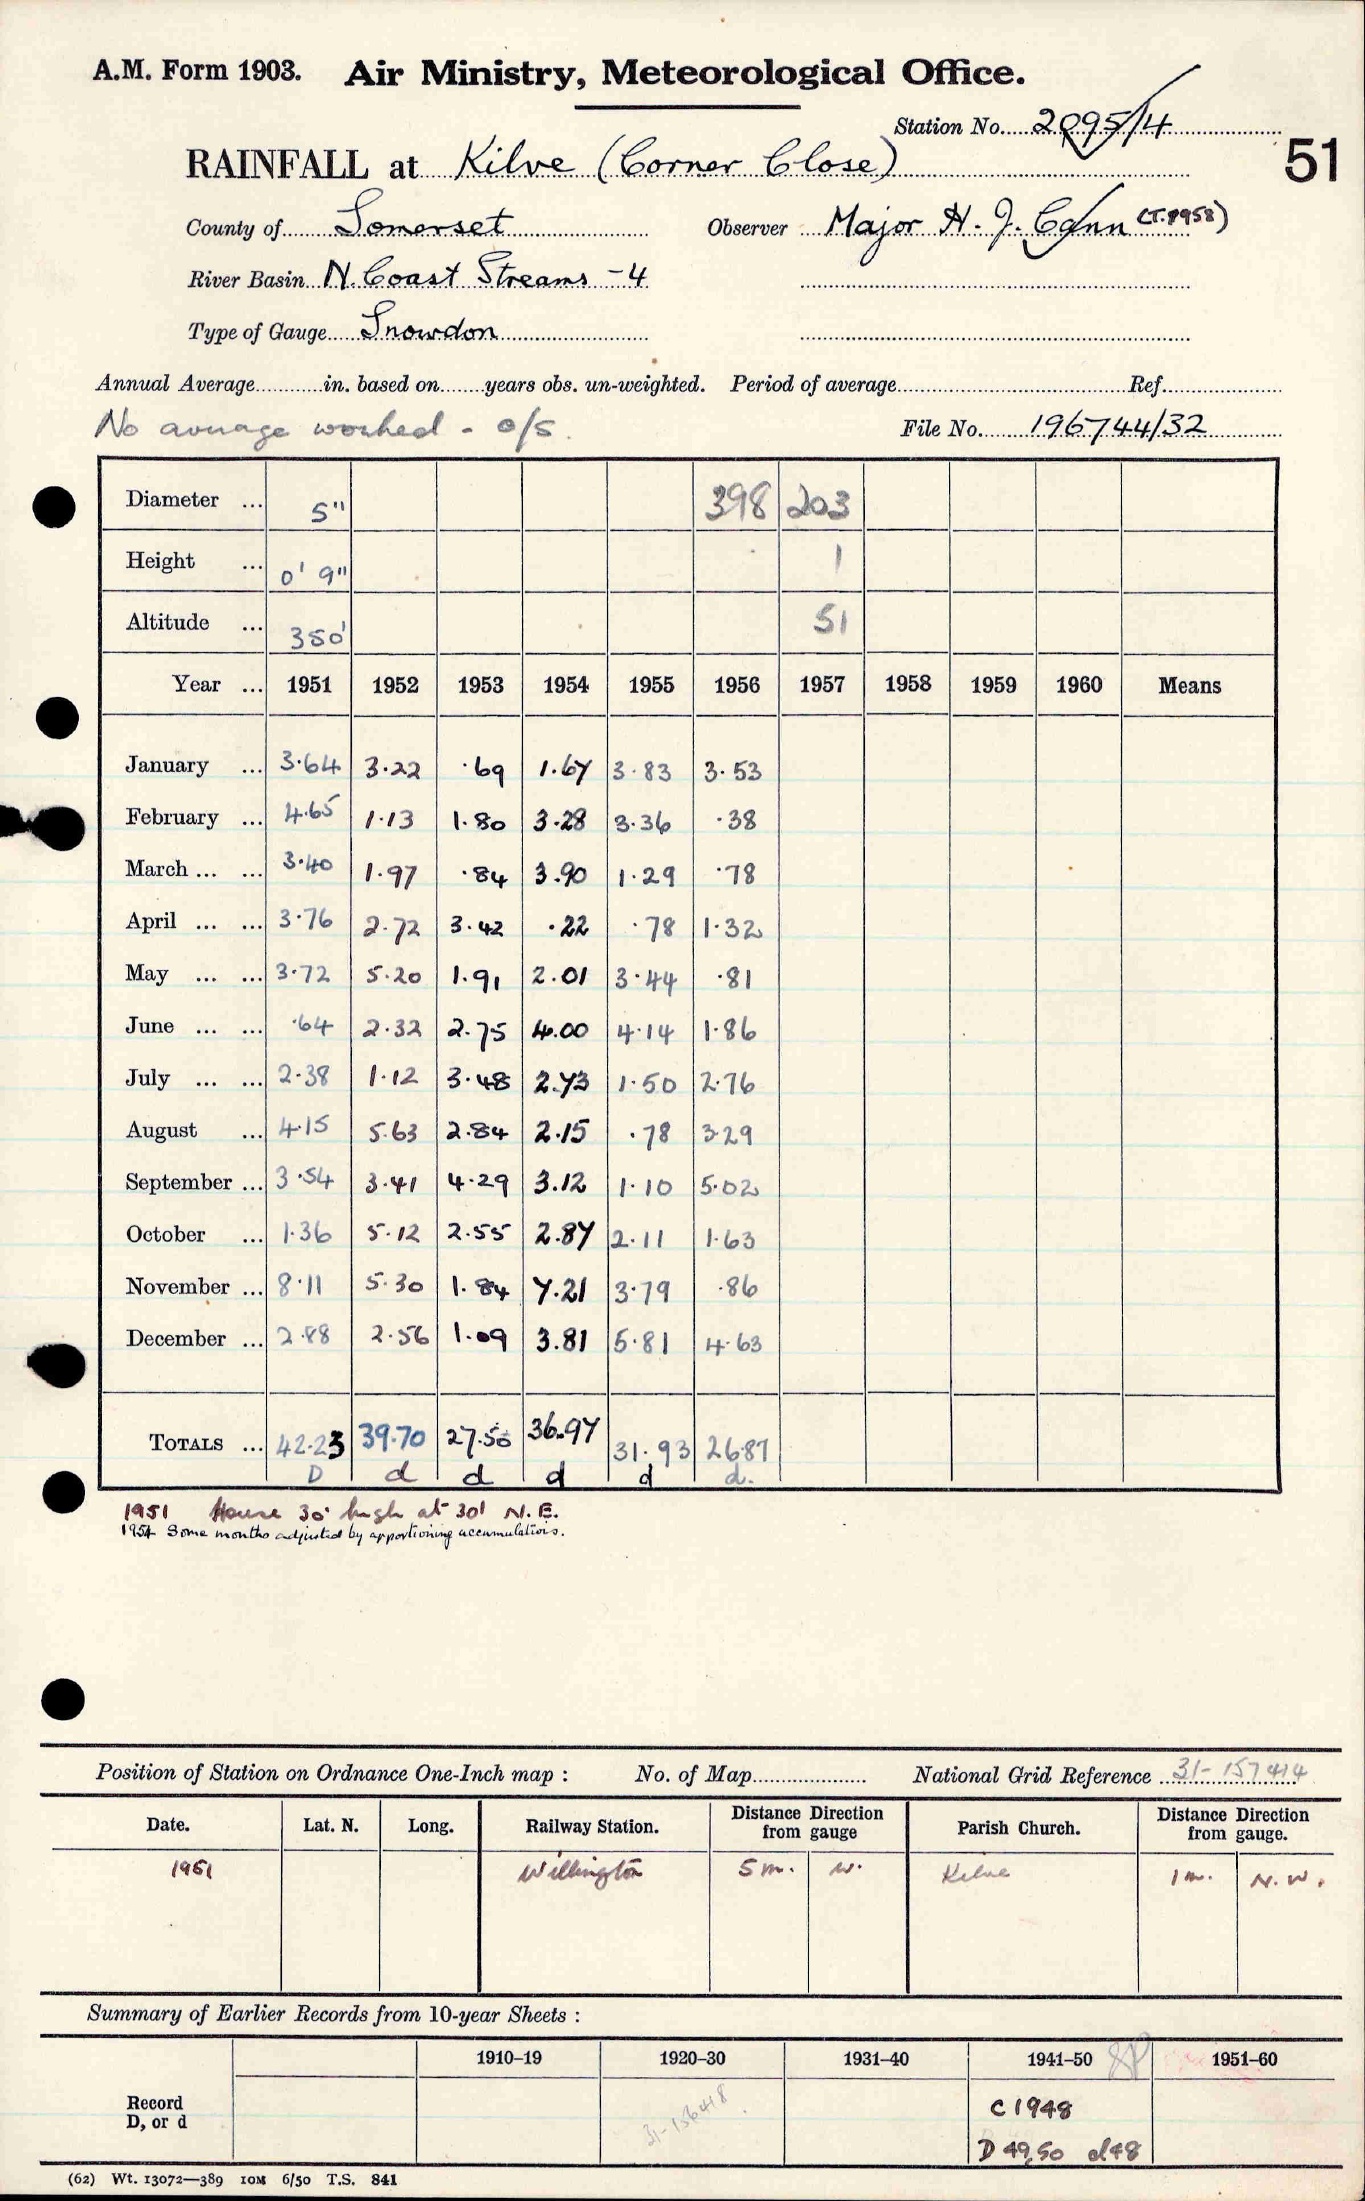 A.M. Form 1903. Air Ministry, Meteorological Office.
Station No. 2095/4
RAINFALL at Kilve (Corner Close) 51
County of Somerset Observer Major H. J. Cann (T.8958)
River Basin N. Coast Streams - 4
Type of Gauge Snowdon
Annual Average in. based on years obs. un-weighted. Period of average Ref.
No average worked - o/s. File No. 196744/32
Diameter ... 5" 398 203
Height ... 0' 9" 1
Altitude ... 350' 51
Year ... 1951 1952 1953 1954 1955 1956 1957 1958 1959 1960 Means
January ... 3.64 3.22 .69 1.67 3.83 3.53
February ... 4.65 1.13 1.80 3.28 3.36 .38
March ... ... 3.40 1.97 .84 3.90 1.29 .78
April ... ... 3.76 2.72 3.42 .22 .78 1.32
May ... ... 3.72 5.20 1.91 2.01 3.44 .81
June ... ... .64 2.32 2.75 4.00 4.14 1.86
July ... ... 2.38 1.12 3.48 2.73 1.50 2.76
August ... 4.15 5.63 2.84 2.15 .78 3.29
September ... 3.54 3.41 4.29 3.12 1.10 5.02
October ... 1.36 5.12 2.55 2.87 2.11 1.63
November ... 8.11 5.30 1.84 7.21 3.79 .86
December ... 2.88 2.56 1.09 3.81 5.81 4.63
TOTALS ... 42.23 39.70 27.50 36.97 31.93 26.87
D d d d d d.
1951 House 30' high at 30' N.E.
1954 Some months adjusted by apportioning accumulations.
Position of Station on Ordnance One-Inch map : No. of Map National Grid Reference 31-157414
Date. Lat. N. Long. Railway Station. Distance Direction from gauge Parish Church. Distance Direction from gauge.
1951 Willington 5 m. W. Kilve 1 m. N.W.
Summary of Earlier Records from 10-year Sheets :
1910–19 1920–30 1931–40 1941–50 1951–60
Record D, or d 31-156418 C 1948
D 49,50 d48
(62) Wt. 13072—389 10M 6/50 T.S. 841